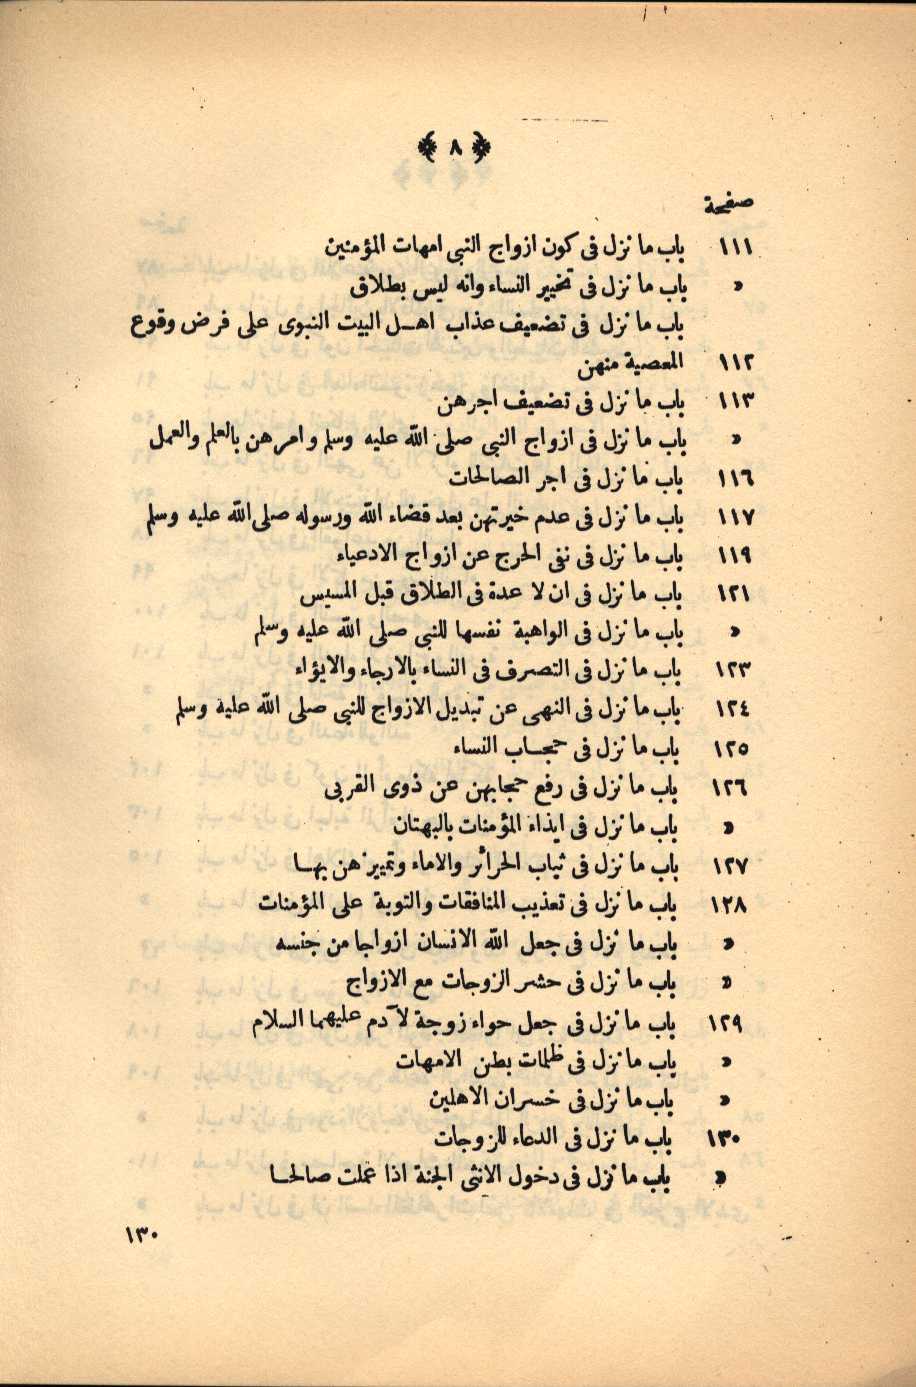 ﴿ ٨ ﴾
صفحة
١١١ باب ما نزل فى كون ازواج النبى امهات المؤمنين
« باب ما نزل فى تخيير النساء وانه ليس بطلاق
باب ما نزل فى تضعيف عذاب اهل البيت النبوى على فرض وقوع
١١٢ المعصية منهن
١١٣ باب ما نزل فى تضعيف اجرهن
« باب ما نزل فى ازواج النبى صلى الله عليه وسلم وامرهن بالعلم والعمل
١١٦ باب ما نزل فى اجر الصالحات
١١٧ باب ما نزل فى عدم خيرتهن بعد قضاء الله ورسوله صلى الله عليه وسلم
١١٩ باب ما نزل فى نفى الحرج عن ازواج الادعياء
١٢١ باب ما نزل فى ان لا عدة فى الطلاق قبل المسيس
« باب ما نزل فى الواهبة نفسها للنبى صلى الله عليه وسلم
١٢٣ باب ما نزل فى التصرف فى النساء بالارجاء والايؤاء
١٢٤ باب ما نزل فى النهى عن تبديل الازواج للنبى صلى الله علية وسلم
١٢٥ باب ما نزل فى حجاب النساء
١٢٦ باب ما نزل فى رفع حجابهن عن ذوى القربى
« باب ما نزل فى ايذاء المؤمنات بالبهتان
١٢٧ باب ما نزل فى ثياب الحرائر والاماء وتمييزهن بها
١٢٨ باب ما نزل فى تعذيب المنافقات والتوبة على المؤمنات
« باب ما نزل فى جعل الله الانسان ازواجا من جنسه
« باب ما نزل فى حشر الزوجات مع الازواج
١٢٩ باب ما نزل فى جعل حواء زوجة لآدم عليهما السلام
« باب ما نزل فى ظلمات بطن الامهات
« باب ما نزل فى خسران الاهلين
١٣٠ باب ما نزل فى الدعاء للزوجات
« باب ما نزل فى دخول الانثى الجنة اذا عملت صالحا
١٣٠